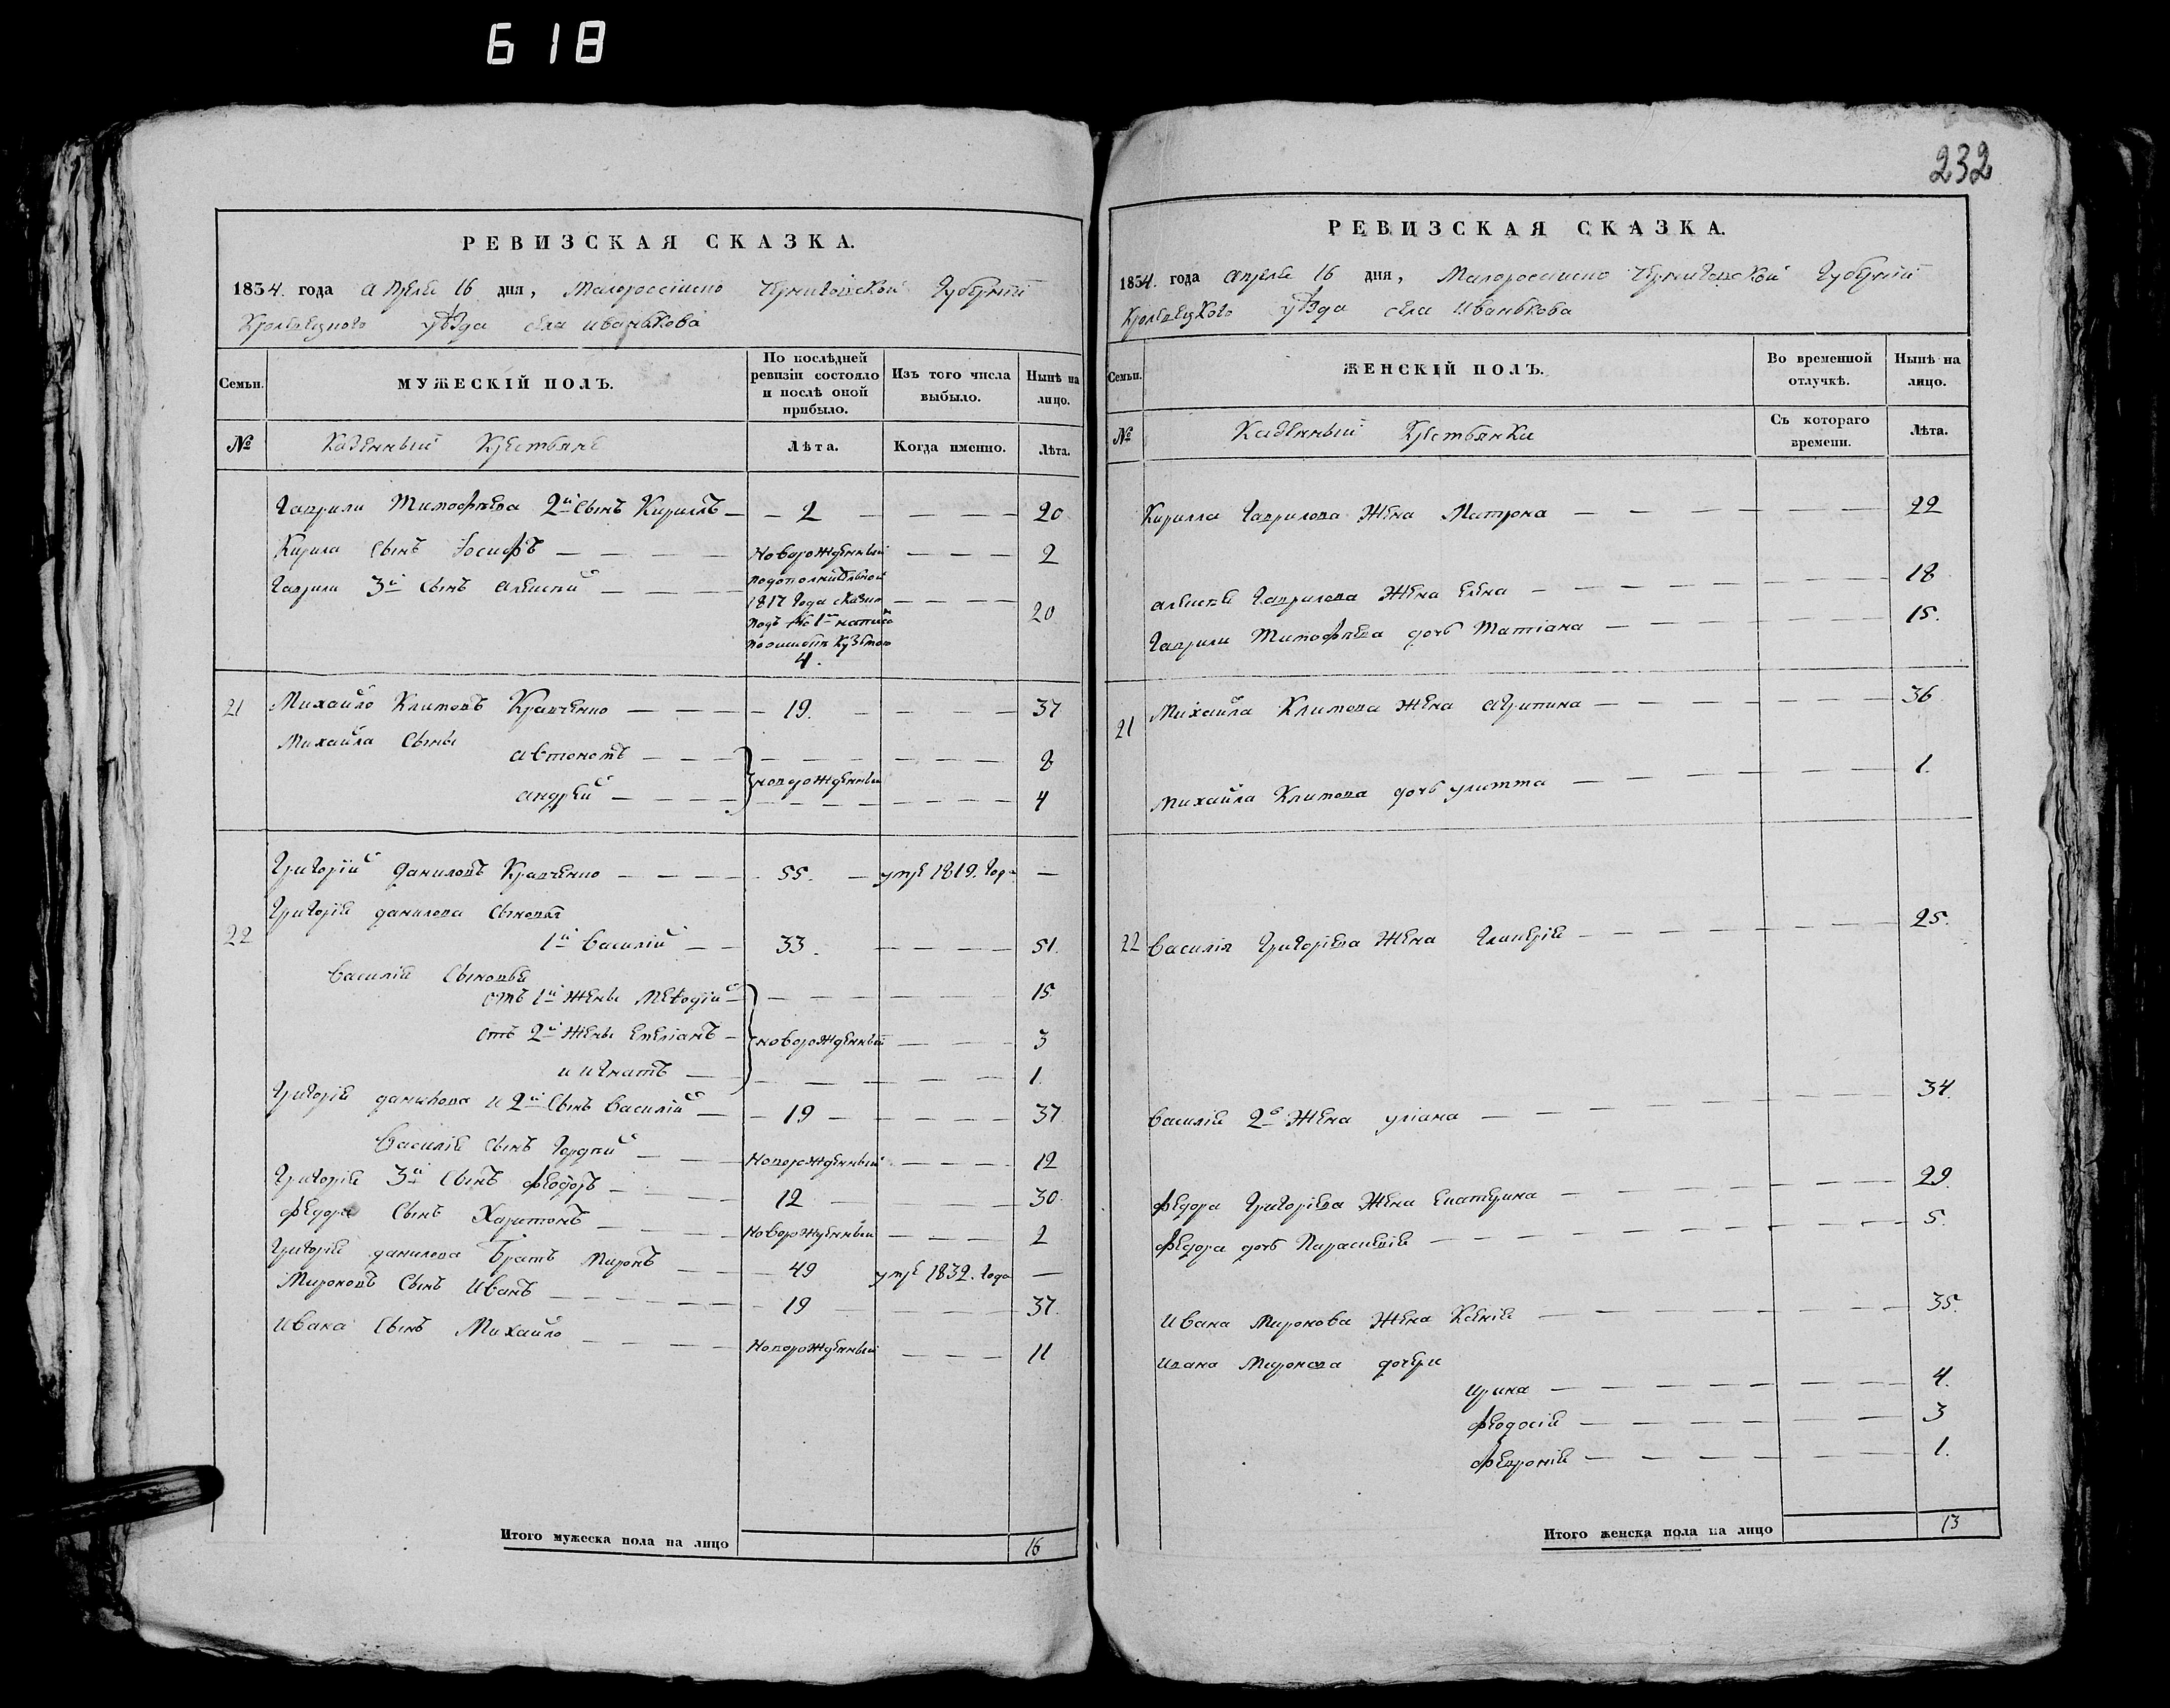 618
232
РЕВИЗСКАЯ СКАЗКА.
1834. года апреля 16 дня, Малороссийско Черниговской Губернии
Кролевецкого уѣзда села Иванькова
Семьи.
МУЖЕСКІЙ ПОЛЪ.
По послѣдней ревизіи состояло и послѣ оной прибыло.
Изъ того числа выбыло.
Нынѣ на лицо.
№
Казенныи Крестьяне
Лѣта.
Когда именно.
Лѣта.
Гаврили Тимофѣева 2й Сынъ Кирилъ — 2 — 20
Кирила Сынъ Іосифъ — новорожденный — 2
Гаврили 3й Сынъ Алексѣй —
1817 года
подъ № 1м
по ошибкѣ Кузьмою
4. — 20
21 Михайло Климовъ Кравченко — 19. — 37
Михайла Сыны
Автономъ — 8
новорожденныи
Андрей — 4
Григорій Даниловъ Кравченко — 55. — умре 1819. Года —
Григорія Данилова Сыновья
22
1й Василій — 33. — 51.
Василія Сыновья
отъ 1й жены Меѳодій — 15
отъ 2й жены Емеліанъ — новорожденныи — 3
и Игнатъ — 1
Григорія Данилова и 2й Сынъ Василій — 19 — 37
Василія Сынъ Гордѣй — новорожденный — 12
Григорія 3й Сынъ Феодоръ — 12 — 30
Федора Сынъ Харитонъ — новорожденный — 2
Григорія Данилова Братъ Миронъ — 49 умре 1832. Года —
Мироновъ Сынъ Иванъ — 19 — 37.
Ивана Сынъ Михайло — новорожденный — 11
Итого мужеска пола на лицо 16
РЕВИЗСКАЯ СКАЗКА.
1834. года апреля 16 дня, Малороссийско Черниговской Губернии
Кролевецкого уѣзда села Иванькова
Семьи.
ЖЕНСКІЙ ПОЛЪ.
Во временной отлучкѣ.
Нынѣ на лицо.
№
Казенныи Крестьянки
Съ котораго времени.
Лѣта.
Кирилла Гаврилова Жена Матрона — 22
Алексѣя Гаврилова Жена Елена — 18
Гаврили Тимофѣева дочь Татіана — 15.
21 Михайла Климова Жена Агрипина — 36
Михайла Климова дочь Улитта — 1.
22 Василія Григоріева Жена Гликерія — 25.
Василія 2я Жена Уліана — 34.
Федора Григоріева Жена Екатерина — 29
Федора дочь Параскевія — 5.
Ивана Миронова Жена Ксенія — 35.
Ивана Миронова дочери
Ирина — 4.
Феодосія — 3
Февронія — 1.
Итого женска пола на лицо 13